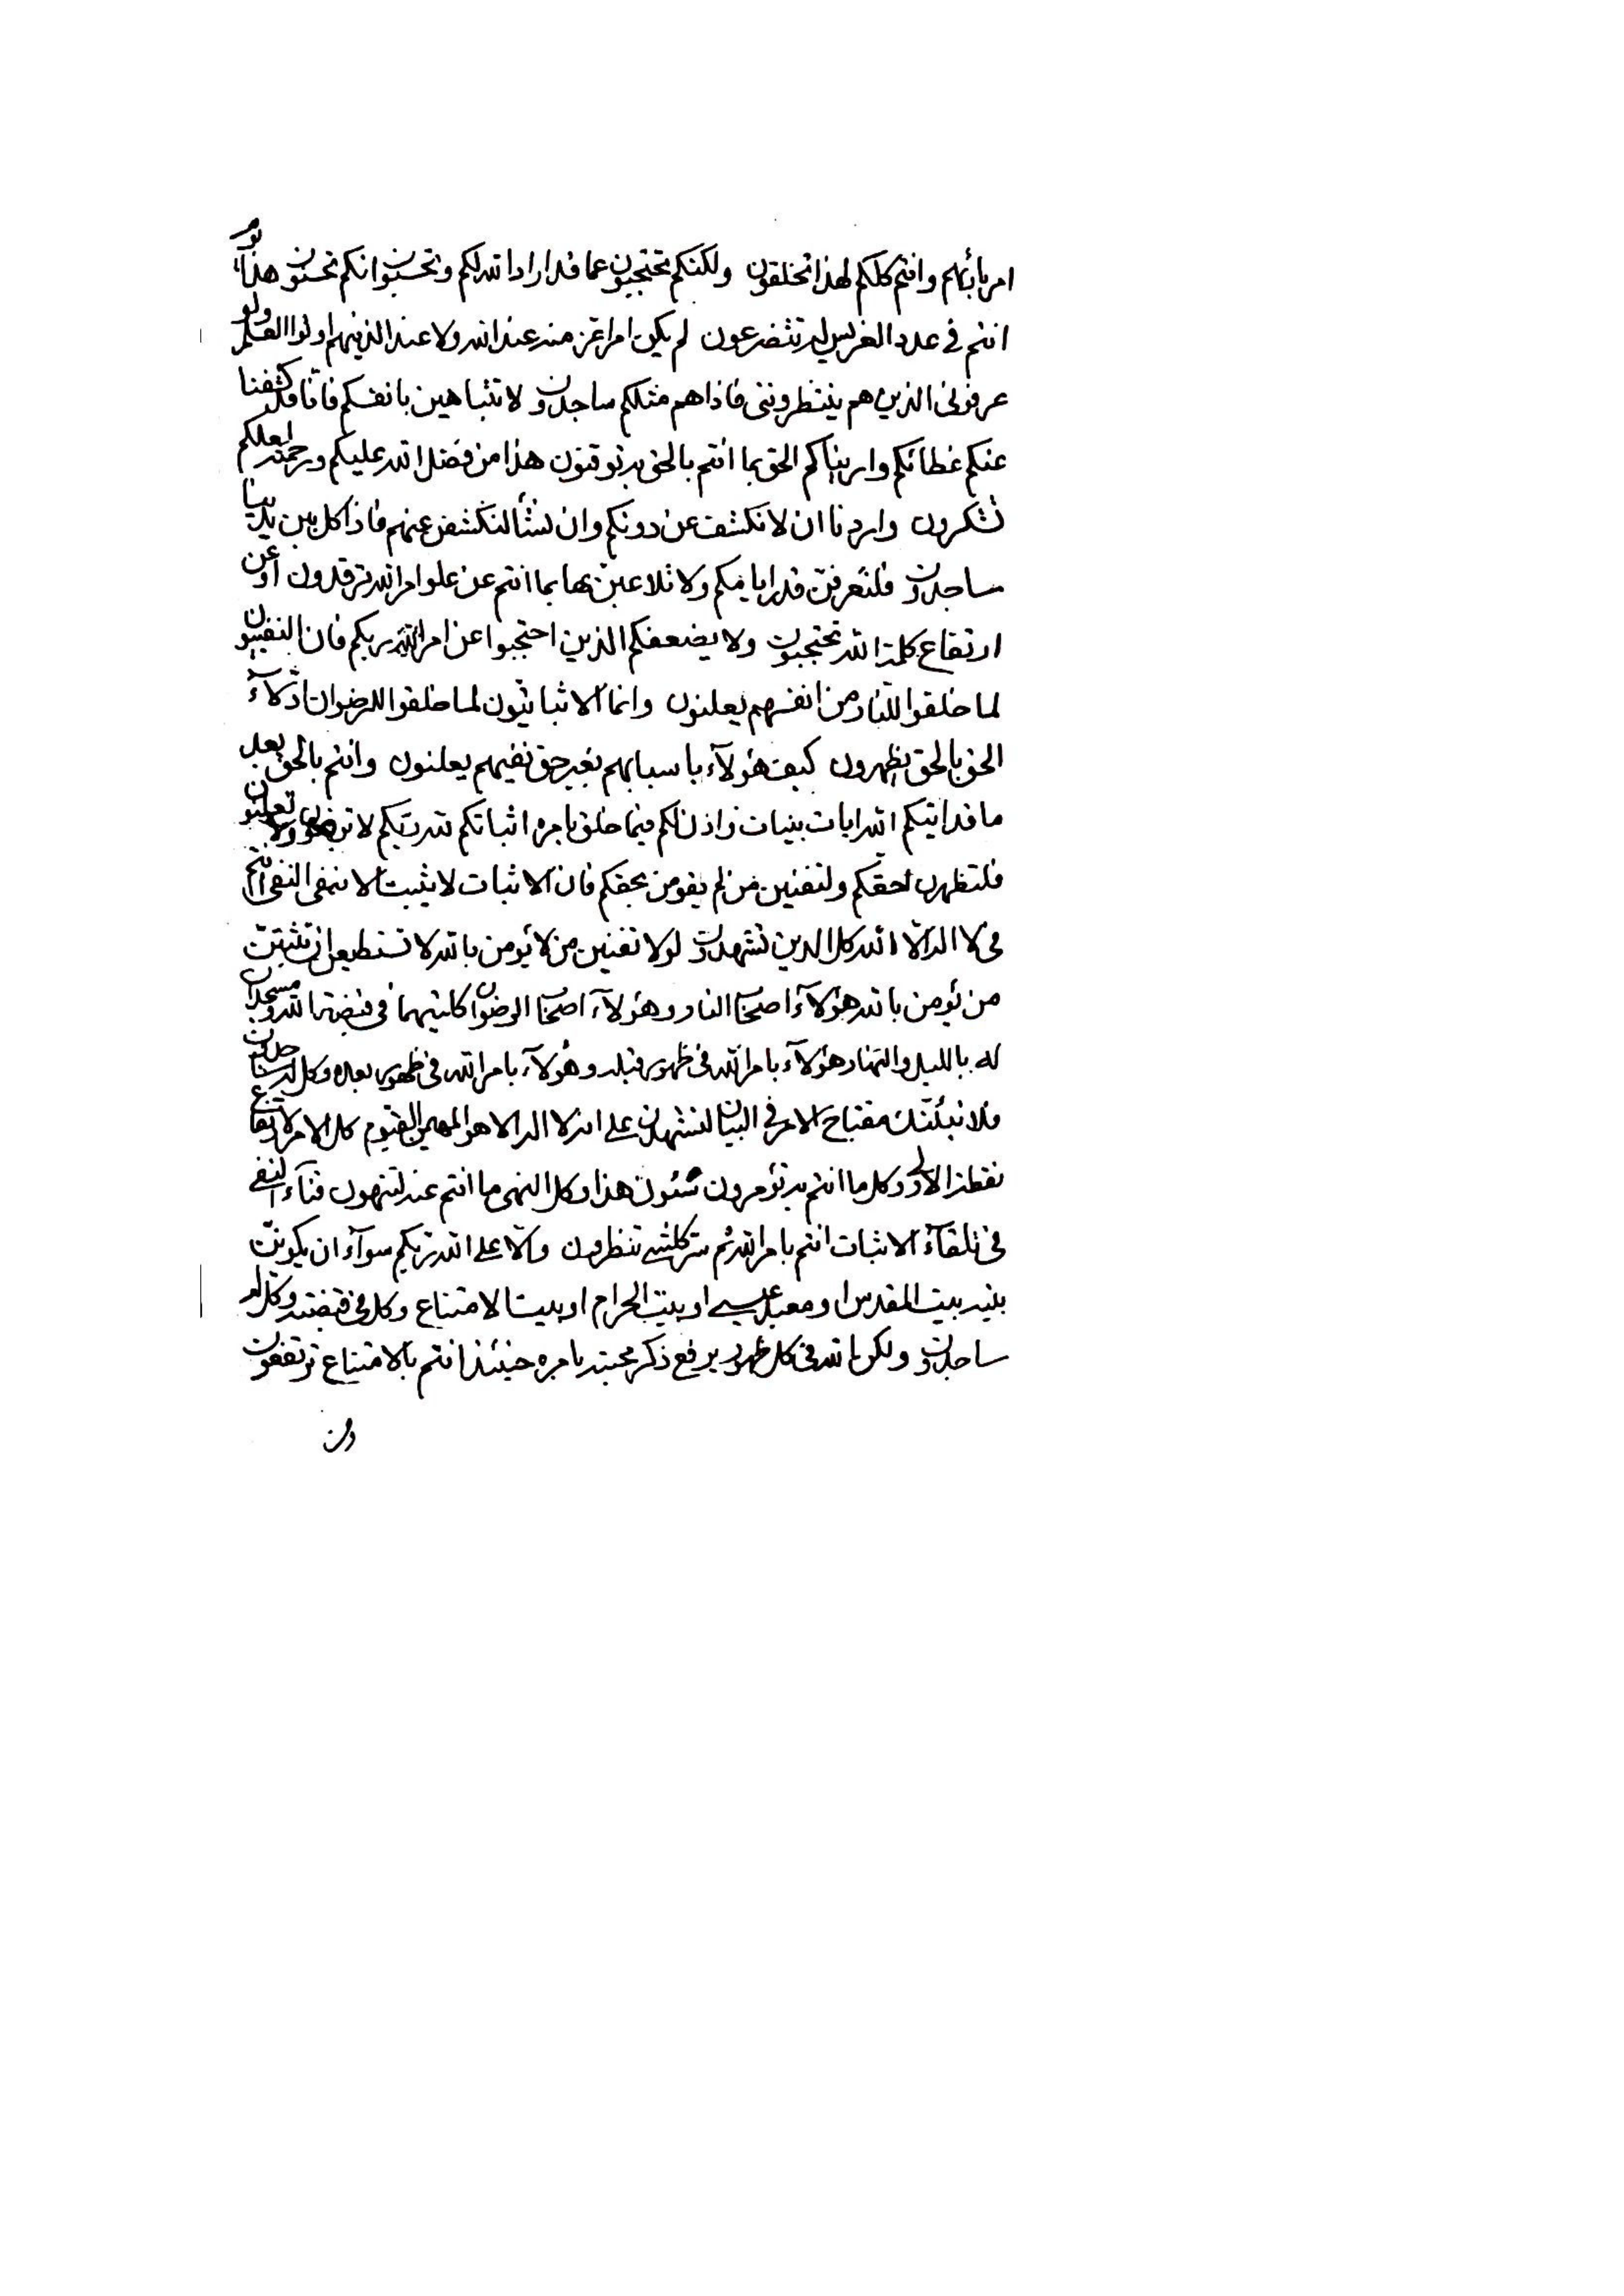 امر بارئهم وانتم كلكم لهذا تخلقون ولكنكم تحتجبون عما قد اراد الله لكم وتحسبون انكم تحسنون هذا يوم
انتم في عدد الغرس لله تتضرعون لم يكن امرا عز منه عند الله ولا عند الذينهم اولوا العلم ولو
عرفوني الذين هم ينتظرونني فاذا هم مثلكم ساجدون ولا تتباهين بانفسكم فانا قد كشفنا
عنكم غطائكم واريناكم الحق بما انتم بالحق به توقنون هذا من فضل الله عليكم ورحمته لعلكم
تشكرون واردنا ان لا نكشف عن دونكم وان نشأ لنكشفن عنهم فاذا كل بين يدينا
ساجدون فلتعرفن قدر ايامكم ولا تلاعبن بها بما انتم عن علو امر الله ترقدون او عن
ارتفاع كلمة الله تحتجبون ولا يضعفكم الذين احتجبوا عن امر الله ربكم فان النفييون
لما خلقوا للنار من انفسهم يعلنون وانما الاثباتيون لما خلقوا للرضوان اذكلآء
الحق بالحق يظهرون كيف هؤلآء باسبابهم بغير حق نفيهم يعلنون وانتم بالحق بعد
ما قد اتيكم الله ايات بينات واذن لكم فيما خلق بامره اثباتكم لله ربكم لا ترضون ولا تعلنون
فلتظهرن حقكم ولتفنين من لم يؤمن بحقكم فان الاثبات لا يثبت الا بنفي النفي انتم
في لا اله الا الله كل الدين تشهدون لو لا تفنين من لا يؤمن بالله لا تستطيعن ان تثبتن
من يؤمن بالله هؤلآء اصحاب النار وهؤلآء اصحاب الرضوان كلتيهما في قبضة الله يسجدان
له بالليل والنهار هؤلآء بامر الله في ظهور قبله وهؤلآء بامر الله في ظهور بعده وكل له ساجدون
فلانبئنك مفتاح الامر في البيان لتشهدن على انه لا اله الا هو المهيمن القيوم كل الامر لارتفاع
نقطة الاولى وكل ما انتم به تؤمرون شئون هذا وكل النهي ما انتم عنه لتنتهون فنآء النفي
في تلقآء الاثبات انتم بامر الله ثم سر كلشئ تنظرون والا على الله ربكم سوآء ان يكونن
بنيه بيت المقدس او معبد عيسى او بيت الحرام او بيت الامتناع وكل في قبضته وكل له
ساجدون ولكن الله في كل ظهور يرفع ذكر محبته بامره حينئذ انتم بالامتناع ترتفعون